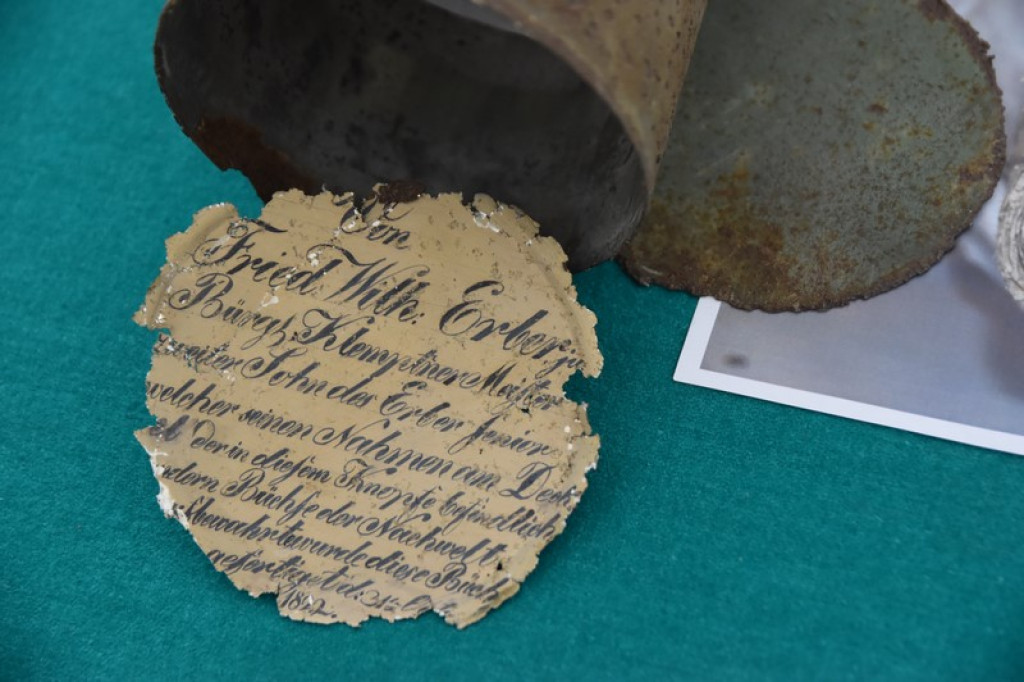 Von
Fried. Wilh: Erber jun
Bürg: Klemptner Meister
zweiter Sohn des Erber senior
welcher seinen Nahmen am Deck
der in diesem Knopfe befindlich
ndern Büchse der Nachwelt
fbewahrt wurde diese Büch
gefertiget d: 31